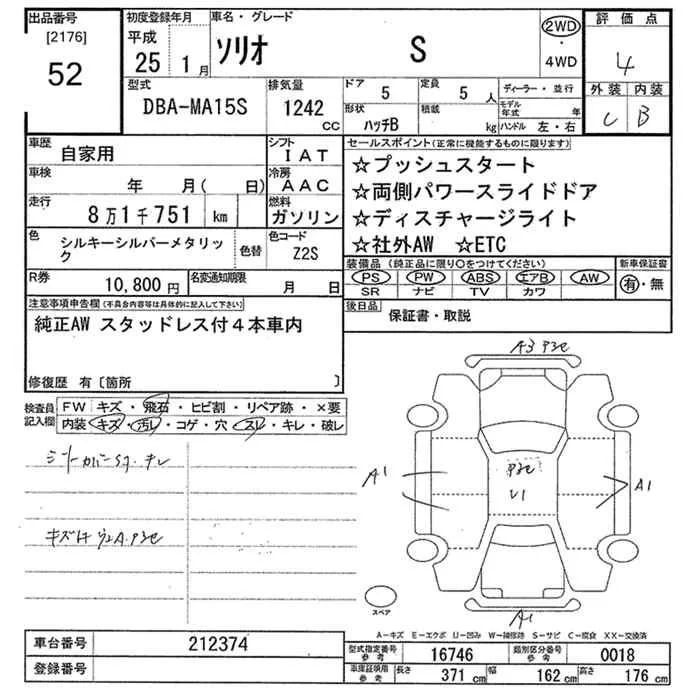 出品番号
[2176]
52
初度登録年月
平成
25 1月
車名・グレード
ソリオ S
2WD
・
4WD
評価点
4
外装 内装
C B
型式
DBA-MA15S
排気量
1242
CC
ドア
5
定員
5 人
形状
ハッチB
積載
kg
ディーラー・並行
モデル年式 年
ハンドル 左・右
車歴
自家用
シフト
IAT
車検
年 月( 日)
冷房
AAC
走行
8万1千751 km
燃料
ガソリン
色
シルキーシルバーメタリック
色替
色コード
Z2S
R券
10,800円
名変通知期限
月 日
セールスポイント(正常に機能するものに限ります)
☆プッシュスタート
☆両側パワースライドドア
☆ディスチャージライト
☆社外AW ☆ETC
装備品(純正品に限り○をつけてください)
PS PW ABS エアB AW
SR ナビ TV カワ
新車保証書
有・無
後日品
保証書・取説
注意事項申告欄(不具合内容等は具体的に記入して下さい)
純正AW スタッドレス付4本車内
修復歴 有〔箇所 〕
検査員記入欄
FW キズ・飛石・ヒビ割・リペア跡・×要
内装 キズ・汚レ・コゲ・穴・スレ・キレ・破レ
A1
A1
A1
スペア
A-キズ E-エクボ U-凹ミ W-補修跡 S-サビ C-腐食 XX-交換済
車台番号
212374
登録番号
型式指定番号
参考
16746
類別区分番号
参考
0018
車庫証明用
参考
長さ
371 cm
幅
162 cm
高さ
176 cm